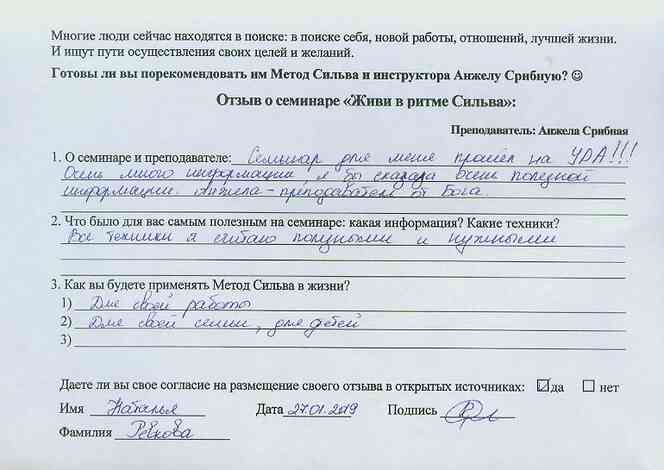 Многие люди сейчас находятся в поиске: в поиске себя, новой работы, отношений, лучшей жизни.
И ищут пути осуществления своих целей и желаний.
Готовы ли вы порекомендовать им Метод Сильва и инструктора Анжелу Срибную? ☺
Отзыв о семинаре «Живи в ритме Сильва»:
Преподаватель: Анжела Срибная
1. О семинаре и преподавателе: Семинар для меня прошел на УРА!!!
Очень много информации я бы сказала очень полезной
информации. Анжела - преподаватель от Бога.
2. Что было для вас самым полезным на семинаре: какая информация? Какие техники?
Все техники я считаю полезными и нужными
3. Как вы будете применять Метод Сильва в жизни?
1) Для своей работы
2) Для своей семьи, для детей
3)
Даете ли вы свое согласие на размещение своего отзыва в открытых источниках: ☑ да ☐ нет
Имя Наталья Дата 27.01.2019 Подпись
Фамилия Ревкова